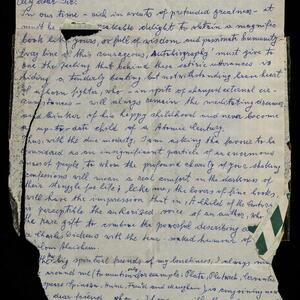 My dear Sir:
In our time - rich in events of pretended greatness - it
must be delight to obtain a magnific
book yours, so full of wisdom and passionate humanity.
Every line of this courageous Autobiography must give to
one the feeling that behind these satiric utterances is
hiding a tenderly beating but notwithstanding brave heart
of a born fighter, who - in spite of changed external cir
cumstances - will always remain the meditating dreamer
and thinker of his happy childhood and never become
an up-to-date child of a Atomic Century.
Thus with the due modesty, I am asking the favor to be
considered as an insignificant particle of an enormous
mass of people to whom the profound charity of your
confessions will mean a real comfort in the darkness of
their struggle for life; like me, the lovers of fine books
will have the impression that in "A Child of the Century"
is perceptible the authorised voice of an author, who
the rare gift to combine the powerful describing
Charles Dickens with the humour of
Sholom Aleichem.
The big spiritual friends of my loneliness, I always
around me (to mention for example: Plato, Plutarch, Cervantes
Spinoza, Hume, Freud and
dear friend